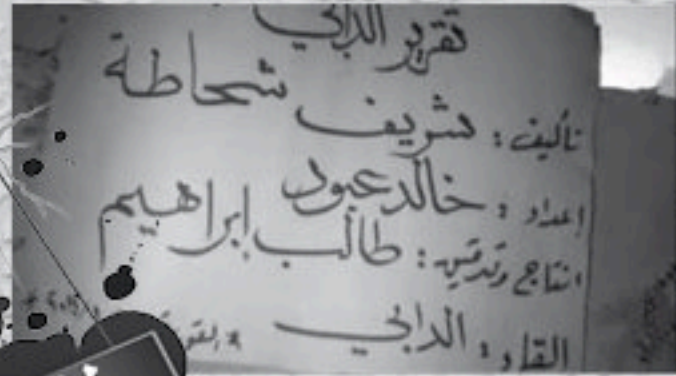 تقرير الدابي
تأليف : شريف شحاطة
إعداد : خالد عبود
انتاج وتدقيق : طالب إبراهيم
القاء : الدابي